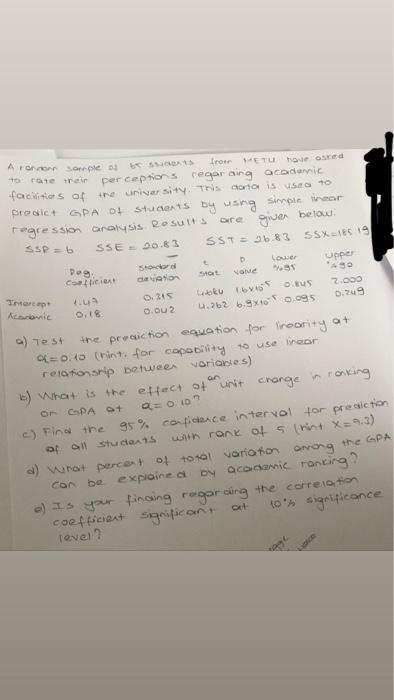 A random sample of 65 students from METU have asked
to rate their perceptions regarding academic
facilities of the university. This data is used to
predict GPA of students by using simple linear
regression analysis. Results are given below.
SSR = 6 SSE = 20.83 SST = 26.83 SSX=185.19
Reg. Coefficient Standard deviation t stat P value Lower %95 upper
Intercept 1.47 0.315 1.6x10⁻⁵ 0.845 2.000
Academic 0.18 0.042 4.262 6.9x10⁻⁵ 0.095 0.249
a) Test the prediction equation for linearity at
α=0.10 (hint: for capability to use linear
relationship between variables)
b) What is the effect of an unit change in ranking
on GPA at α=0.10?
c) Find the 95% confidence interval for prediction
of all students with rank of 5 (hint X=9.3)
d) What percent of total variation among the GPA
can be explained by academic ranking?
e) Is your finding regarding the correlation
coefficient significant at 10% significance
level?